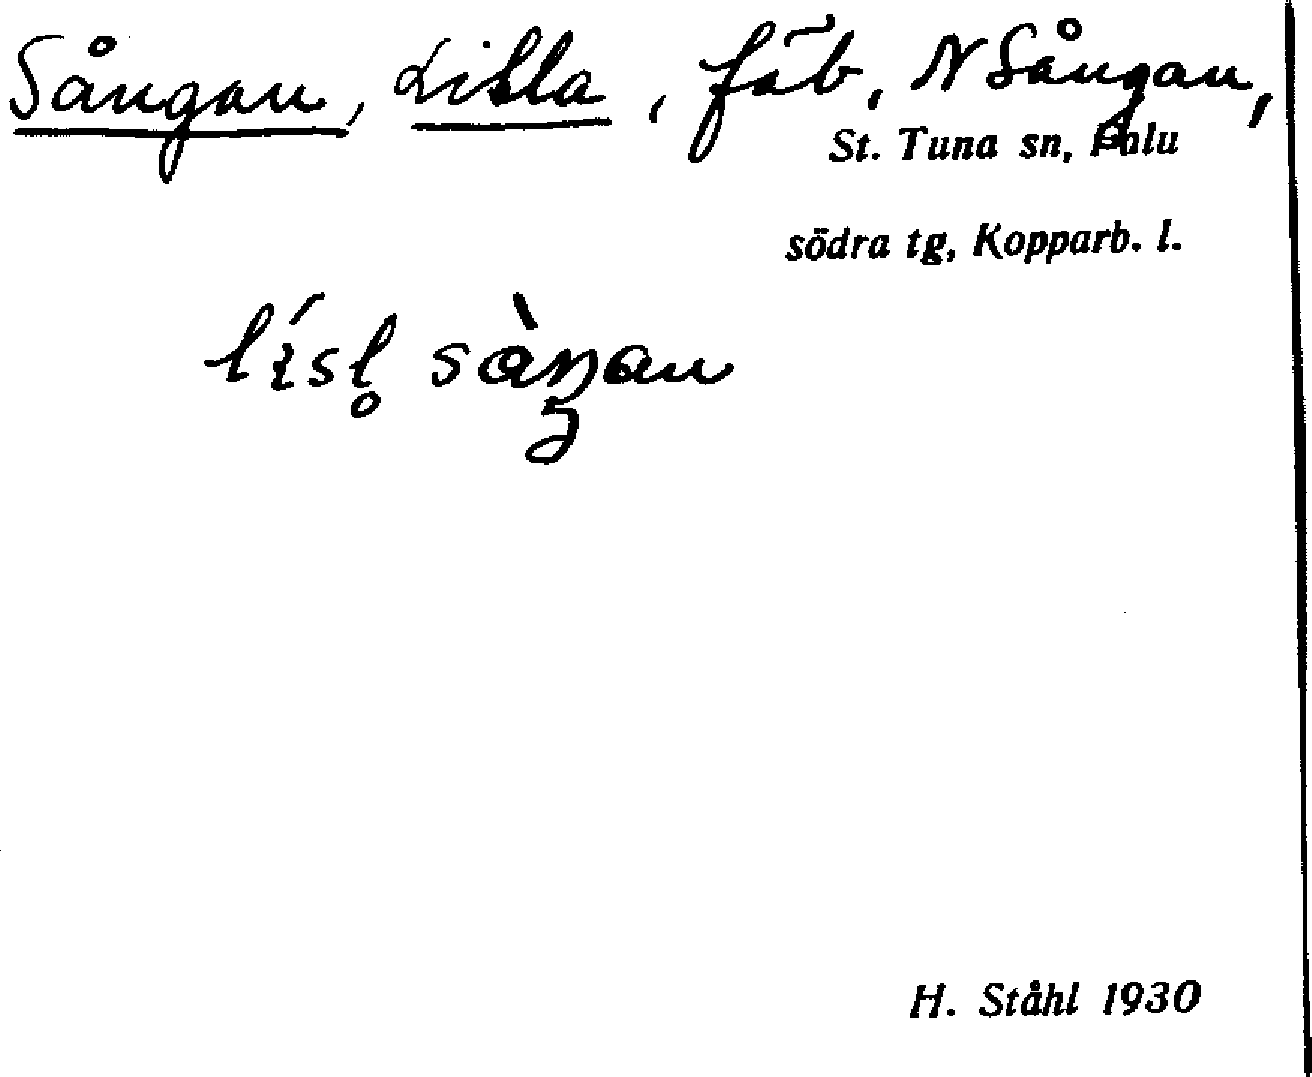 Sångan, Lilla, fäb, N Sångan,
St. Tuna sn, Falu
södra tg, Kopparb. l.
H. Ståhl 1930